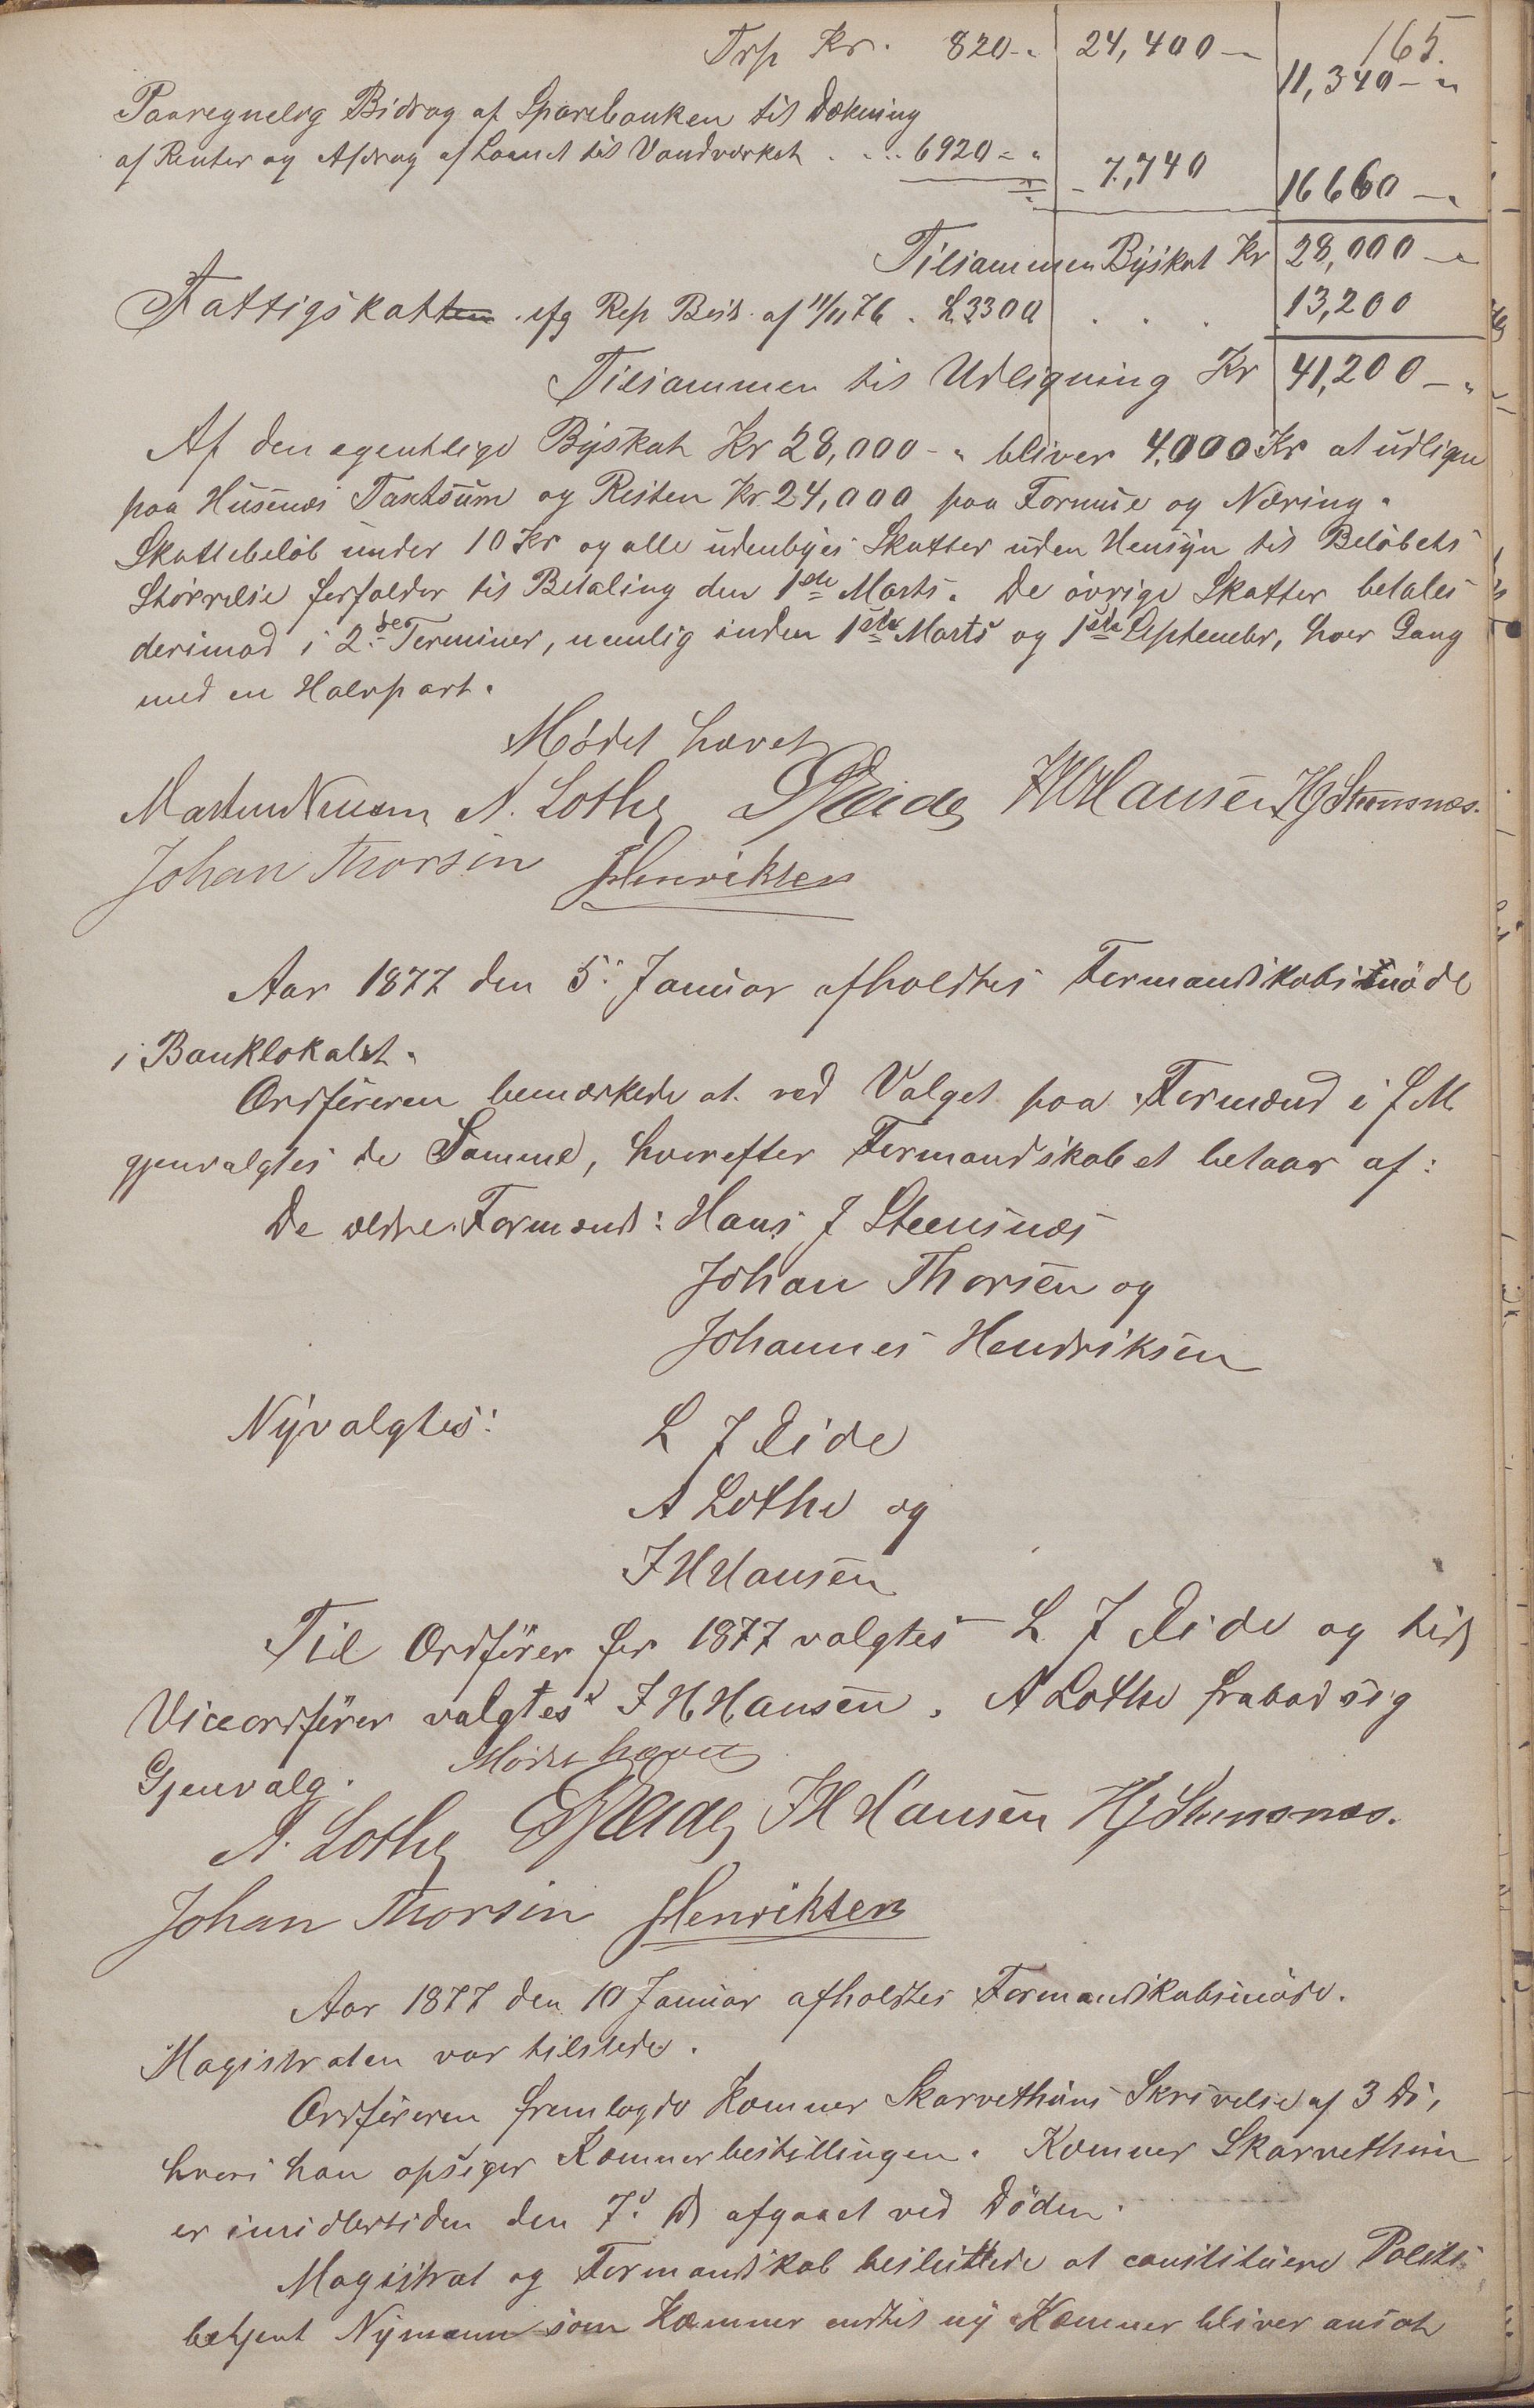 165.
Trp Kr. 820 - " 24,400 - 11,340 - "
Paaregnelig Bidrag af Sparebanken til Dækning
af Renter og Afdrag af Laanet til Vandværket . . . . 6920 - " - 7,740 16660 - "
Tilsammen Byskat Kr 28,000 - "
Fattigskatten efg Rep Besl. af 11/11 76 . L 3300 . . . 13,200
Tilsammen til Udligning Kr 41,200 - "
Af den egentlige Byskat Kr 28,000 - " bliver 4,000 Kr at udligne
paa Husenes Taxtsum og Resten Kr. 24,000 paa Formue og Næring.
Skattebeløb under 10 Kr og alle udenbyes Skatter uden Hensyn til Beløbets
Størrelse forfalder til Betaling den 1ste Marts. De øvrige Skatter betales
derimod i 2de Terminer, nemlig inden 1ste Marts og 1ste September, hver Gang
med en Halvpart.
Mødet hævet
A. Lothe LJEide JHHansen HJSteensnæs.
Johan Thorsen JHenriksen
Aar 1877 den 5. Januar afholdtes Formandskabsmøde
i Banklokalet.
Ordføreren bemærkede at ved Valget paa Formænd i f M.
gjenvalgtes de Samme, hvorefter Formandskabet bestaar af:
De ældre Formænd: Hans J Steensnæs
Johan Thorsen og
Johannes Hendriksen
Nyvalgtes: L J Eide
A Lothe og
J H Hansen
Til Ordfører for 1877 valgtes L J Eide og til
Viceordfører valgtes J H Hansen. A Lothe frabad sig
Gjenvalg. Mødet hævet
A. Lothe LJEide JH Hansen HJSteensnæs.
Johan Thorsen JHenriksen
Aar 1877 den 10 Januar afholdtes Formandskabsmøde.
Magistraten var tilstede.
Ordføreren fremlagde Kæmner Skarvethuns Skrivelse af 3 Ds,
hvori han opsiger Kæmnerbestillingen. Kæmner Skarvethun
er imidlertiden den 7. Ds afgaaet ved Døden.
Magistrat og Formandskab besluttede at constituere Politi
betjent Nymann som Kæmner indtil ny Kæmner bliver ansat